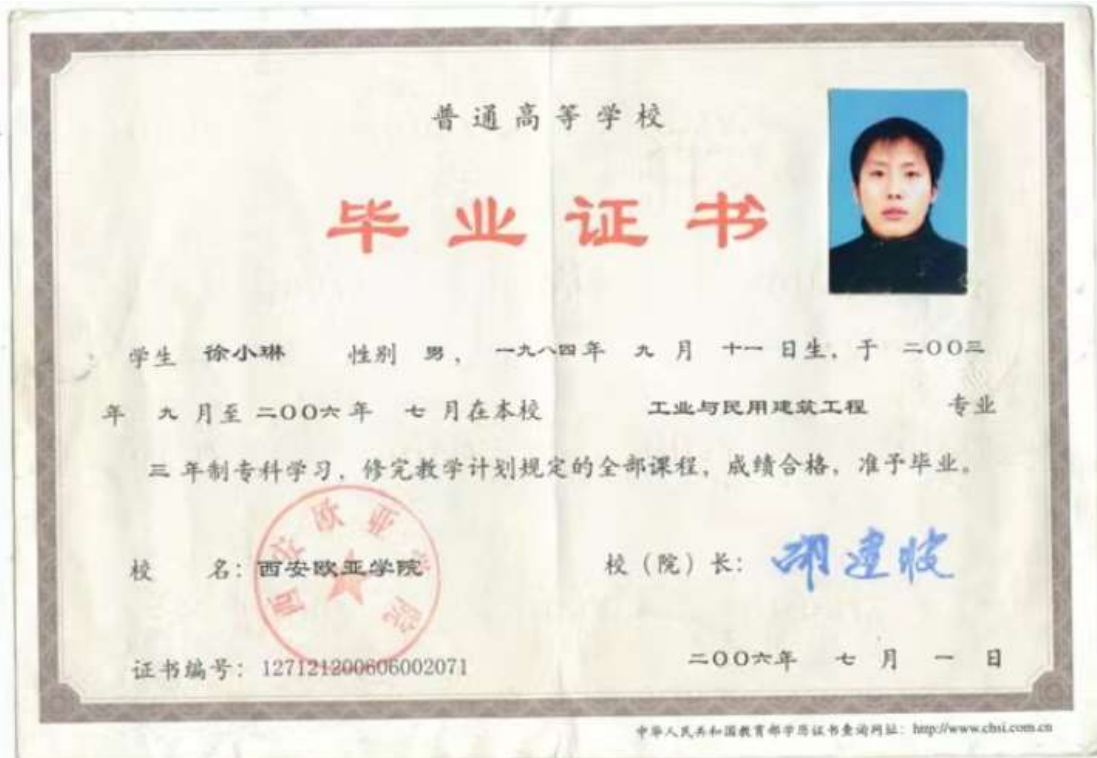 普通高等学校
毕业证书
学生 徐小琳 性别 男，一九八四年 九 月 十一 日生，于 二〇〇三
年 九 月至 二〇〇六年 七 月在本校 工业与民用建筑工程 专业
三 年制专科学习，修完教学计划规定的全部课程，成绩合格，准予毕业。
校 名：西安欧亚学院
西安欧亚学院
校（院）长：胡建波
证书编号：127121200606002071
二〇〇六年 七 月 一 日
中华人民共和国教育部学历证书查询网址：http://www.chsi.com.cn